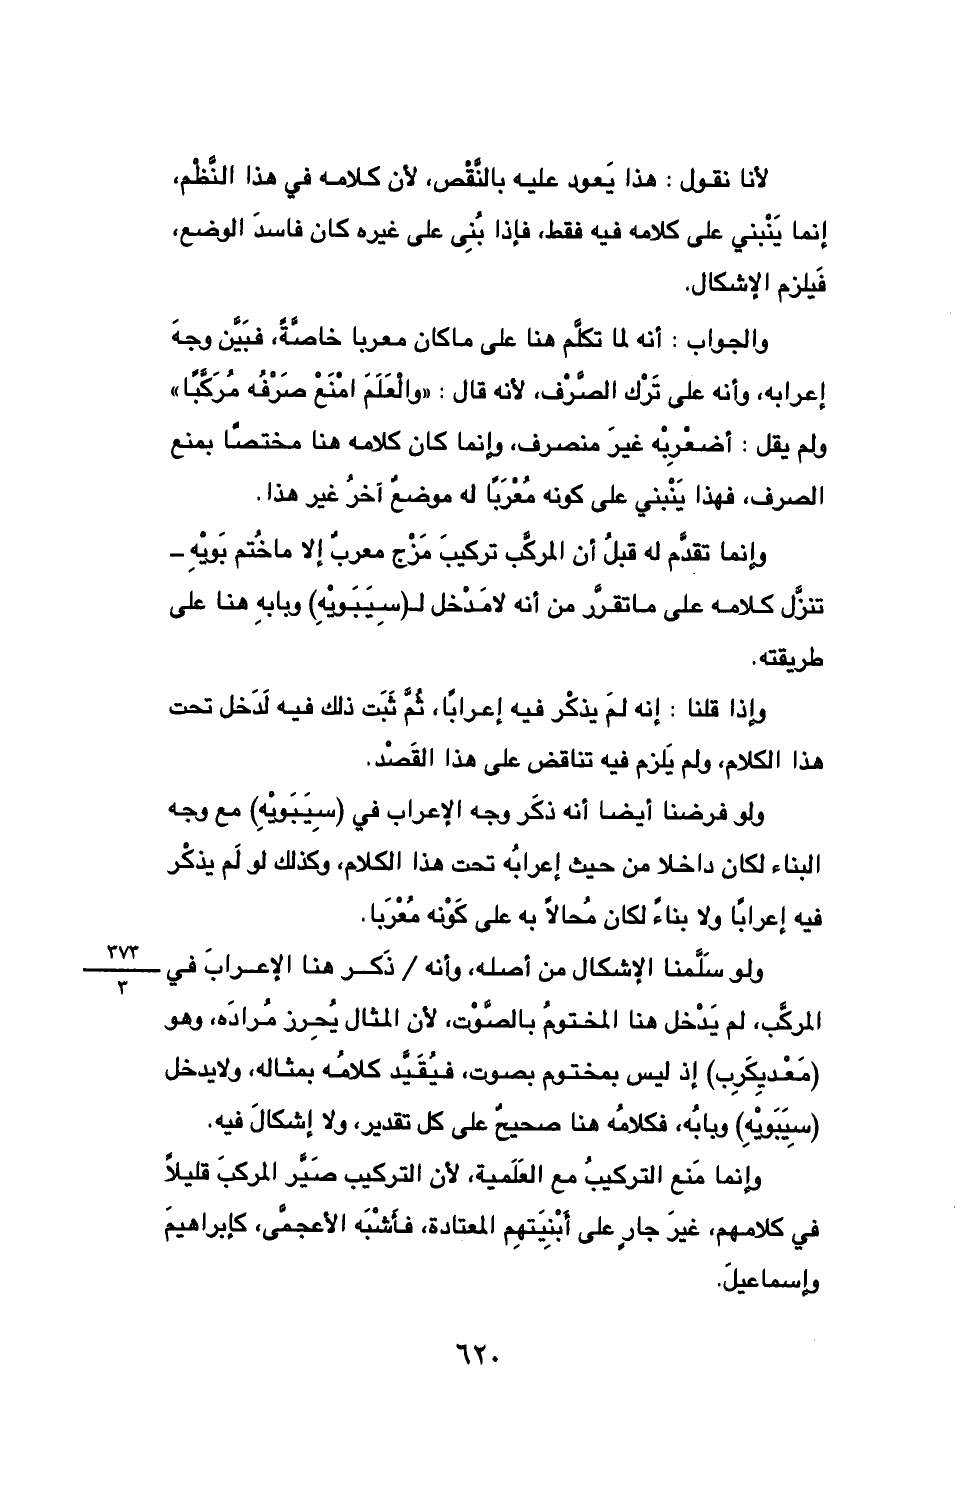 لأنا نقول : هذا يَعود عليه بالنَّقْص، لأن كلامه في هذا النَّظْم،
إنما يَنْبني على كلامه فيه فقط، فإذا بُنِي على غيره كان فاسدَ الوضع،
فَيلزم الإشكال.
والجواب : أنه لما تكلَّم هنا على ماكان معربا خاصَّةً، فبَيَّن وجهَ
إعرابه، وأنه على تَرْك الصَّرْف، لأنه قال : «والْعَلَمَ امْنَعْ صَرْفَه مُرَكَّبًا»
ولم يقل : أضعْرِبْه غيرَ منصرف، وإنما كان كلامه هنا مختصًّا بمنع
الصرف، فهذا يَنْبني على كونه مُعْرَبًا له موضعٌ آخرُ غير هذا.
وإنما تقدَّم له قبلُ أن المركَّب تركيبَ مَزْج معربٌ إلا ماخُتم بَويْهِ -
تنزَّل كلامه على ماتقرَّر من أنه لامَدْخل لـ(سِيبَويْهِ) وبابهِ هنا على
طريقته.
وإذا قلنا : إنه لمَ يذكْر فيه إعرابًا، ثُمَّ ثَبَت ذلك فيه لَدَخل تحت
هذا الكلام، ولم يَلزم فيه تناقض على هذا القَصْد.
ولو فرضنا أيضا أنه ذكَر وجه الإعراب في (سِيبَويْهِ) مع وجه
البناء لكان داخلا من حيث إعرابُه تحت هذا الكلام، وكذلك لو لَم يذكْر
فيه إعرابًا ولا بناءً لكان مُحالاً به على كَوْنه مُعْرَبا.
ولو سَلَّمنا الإشكال من أصله، وأنه / ذَكَر هنا الإعرابَ في
٣٧٣
٣
المركَّب، لم يَدْخل هنا المختومُ بالصَّوْت، لأن المثال يُحرز مُرادَه، وهو
(مَعْدِيكَرِب) إذ ليس بمختوم بصوت، فيُقَيَّد كلامُه بمثاله، ولايدخل
(سِيبَويْهِ) وبابُه، فكلامُه هنا صحيحٌ على كل تقدير، ولا إشكالَ فيه.
وإنما مَنع التركيبُ مع العَلَمية، لأن التركيب صَيَّر المركبَ قليلاً
في كلامهم، غيرَ جارٍ على أَبْنِيَتهِم المعتادة، فأشْبَه الأعجمَّى، كإبراهيمَ
وإسماعيلَ.
٦٢٠